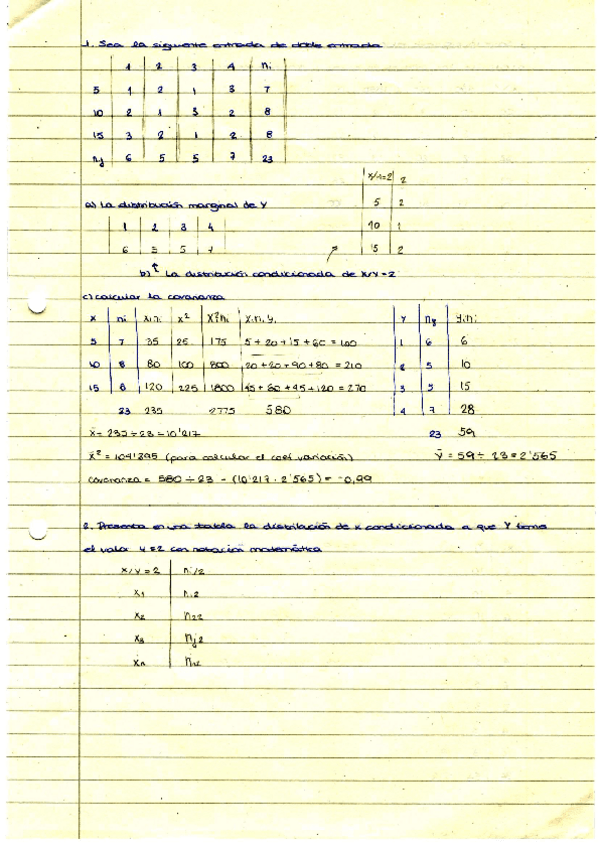 1. Sea la siguiente entrada de doble entrada
1 2 3 4 ni
5 1 2 1 3 7
10 2 1 3 2 8
15 3 2 1 2 8
nj 6 5 5 7 23
a) La distribución marginal de Y
1 2 3 4
6 5 5 7
x/Y=2 2
5 2
10 1
15 2
b) ↑ La distribución condicionada de X/Y=2
c) calcular la covarianza
x ni xini x² x²ni xiniyj
5 7 35 25 175 5+20+15+60=100
10 8 80 100 800 20+20+90+80=210
15 8 120 225 1800 45+60+45+120=270
23 235 2775 580
Y nj yjnj
1 6 6
2 5 10
3 5 15
4 7 28
23 59
x̄= 235÷23=10'217
x̄²= 104'395 (para calcular el coef variación)
ȳ= 59÷23=2'565
covarianza = 580÷23 - (10'217·2'565)= -0,99
2. Presenta en una tabla la distribución de x condicionada a que Y toma
el valor y=2 con notación matemática
x/Y=2 ni/2
x1 n12
x2 n22